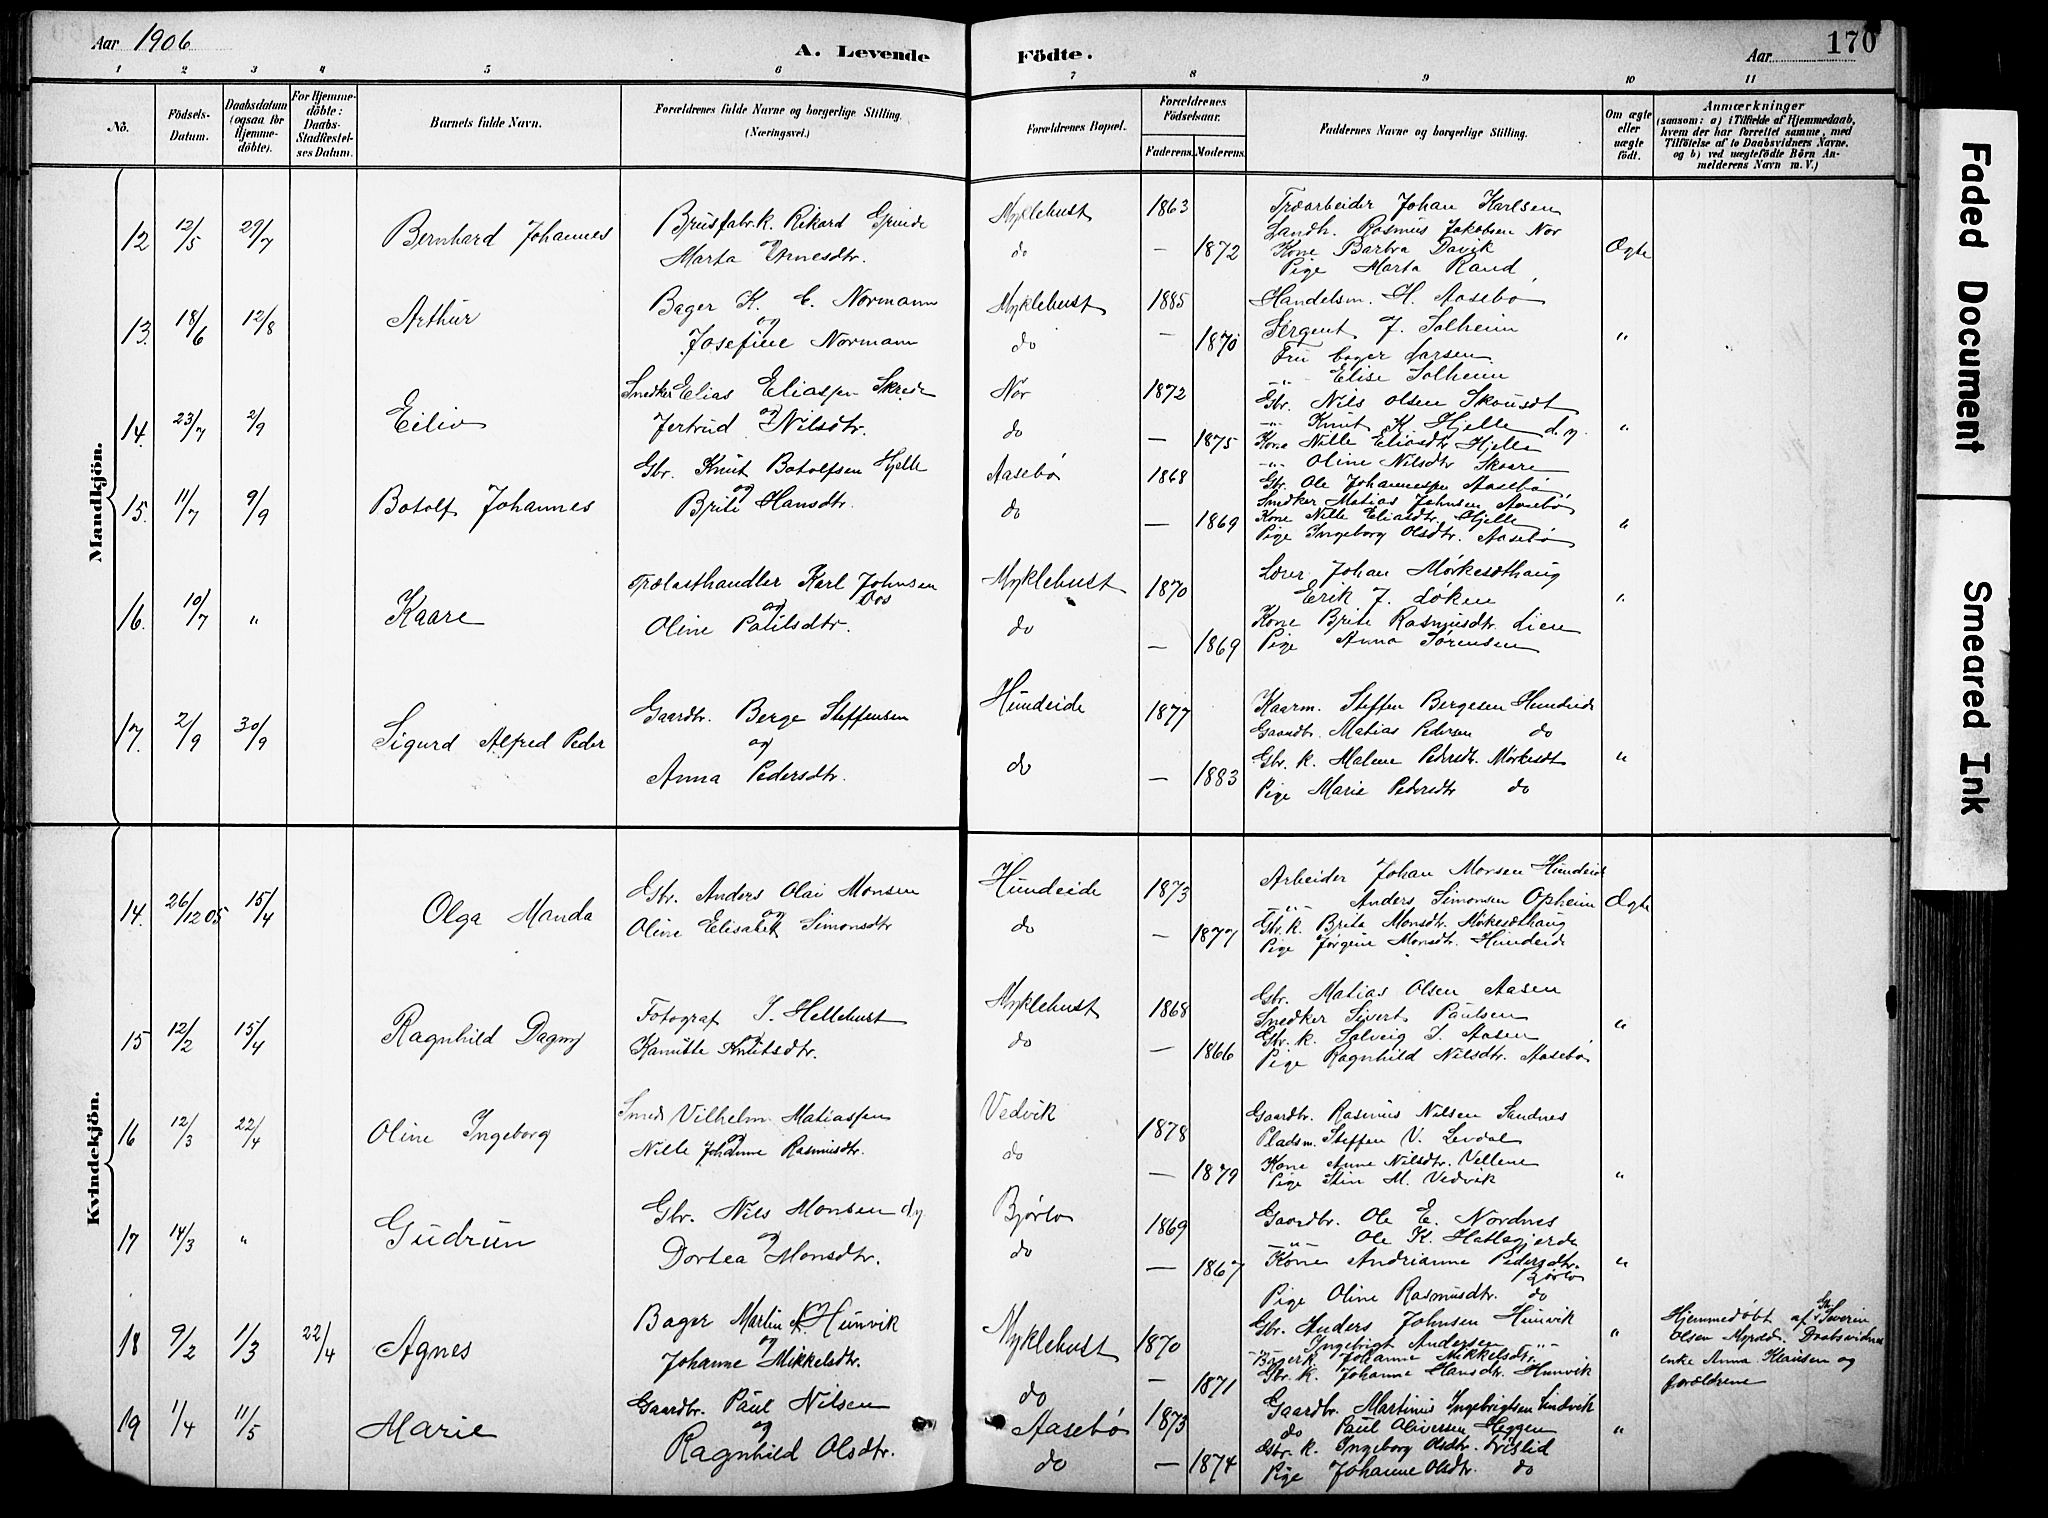 Aar 1906
A. Levende Födte.
Aar
170
1 2 3 4 5 6 7 8 9 10 11
Nö.
Födsels-Datum.
Daabsdatum (ogsaa for Hjemme-döbte).
For Hjemme-döbte: Daabs-Stadfæstel-ses Datum.
Barnets fulde Navn.
Forældrenes fulde Navne og borgerlige Stilling. (Næringsvei.)
Forældrenes Bopæl.
Forældrenes Födselsaar.
Faderens. Moderens.
Faddernes Navne og borgerlige Stilling.
Om ægte eller uægte födt.
Anmærkninger
(saasom: a) i Tilfælde af Hjemmedaab, hvem der har forrettet samme, med Tilföielse af to Daabsvidners Navne, og b) ved uægtefödte Börn Anmelderens Navn m. V.)
Mandkjön.
12 12/5 29/7 Bernhard Johannes
Brusfabrk. Rikard Grinde
og
Marta Arnesdtr.
Myklebust 1863
do — 1872
Træarbeider Johan Karlsen
Landh. Rasmus Jakobsen Nor
Kone Barbra Davik
Pige Marta Rand
Ægte
13. 18/6 12/8 Arthur
Bager K. E. Normann
og
Josefine Normann
Myklebust 1885
do 1870
Handelsm. H. Aasebø
Sergent J. Solheim
Fru bager Larsen
-"- Elise Solheim
"
14. 23/7 2/9 Eiliv
Snedker Elias Eliassen Skrede
og
Jertrud Nilsdtr.
Nor 1872
do — 1875
Gbr. Nils Olsen
-"- Knut K. Hjelle d. y.
Kone Nille Eliasdtr Hjelle
-"- Oline Nilsdtr Skaare
"
15. 11/7 9/9 Botolf Johannes
Gbr. Knut Botolfsen Hjelle
og
Brite Hansdtr.
Aasebø 1868
do — 1869
Gbr. Ole Johannessen Aasebø
Snedker Matias Johnsen Aasebø
Kone Nille Eliasdtr. Hjelle
Pige Ingeborg Olsdtr. Aasebø
"
16. 10/7 " Kaare
Trælasthandler Karl Johnsen
Oos
og
Oline Paulsdtr.
Myklebust 1870
do — 1869
Lærer Johan Mørkesæthaug
Erik J. Løken
Kone Brite Rasmusdtr. Lien
Pige Anna Sørensen
"
17. 2/9 30/9 Sigurd Alfred Peder
Gaardbr. Berge Steffensen
og
Anna Pedersdtr.
Hundeide 1877
do — 1883
Kaarm. Steffen Bergesen Hundeide
Gaardbr. Matias Pedersen do
Gbr. k. Malene Pedersdtr. Mørkesdt
Pige Marie Pedersdtr do
"
Kvindekjön.
14. 26/12 05 15/4 Olga Manda
Gbr. Anders Olai Monsen
og
Oline Elisabet Simonsdtr
Hundeide 1873
do — 1877
Arbeider Johan Monsen Hundeide
-"- Anders Simonsen Opheim
Gbr. k. Brita Monsdtr. Mørkesæthaug
Pige Jørgine Monsdtr. Hundeide
Ægte
15 12/2 15/4 Ragnhild Dagny
Fotograf J. Hellebust
og
Kanutte Knutsdtr.
Myklebust 1868
do — 1866
Gbr. Matias Olsen Aasen
Snedker Sivert Paulsen
Gbr. k. Solveig J. Aasen
Pige Ragnhild Nilsdtr. Aasebø
"
16 12/3 22/4 Oline Ingeborg
Smed Vilhelm Matiassen
og
Nille Johanne Rasmusdtr.
Vedvik 1878
do — 1879
Gaardbr. Rasmus Nilsen Sandnes
Pladsm. Steffen V. Levdal
Kone Anne Nilsdtr. Vellene
Pige Stin M. Vedvik
"
17 14/3 " Gudrun
Gbr. Nils Monsen d.y.
og
Dortea Monsdtr.
Bjørlo 1869
do — 1867
Gaardbr. Ole E. Nordnes
-"- Ole K. Hatlegjerde
Kone Andrianne Pedersdtr.
Bjørlo
Pige Oline Rasmusdtr. do
"
18 9/2 1/3 22/4 Agnes
Bager Martin A. Hunvik
og
Johanne Mikkelsdtr.
Myklebust 1870
do — 1871
Gbr. Anders Johnsen Hunvik
-"- Ingebrigt Andersen -"-
Bagerk. Johanne Mikkelsdtr.
Gbr. k. Johanne Hansdtr. Hunvik
"
Hjemmedøbt af Gbr. Severin
Olsen Myrsed. Daabsvidner
enke Anna Klausen og
forældrene
19 1/4 11/5 Marie
Gaardbr. Paul Nilsen
og
Ragnhild Olsdtr.
Aasebø 1873
do — 1874
Gaardbr. Martinus Ingebrigtsen Lindvik
do Paul Oliversen Heggen
Gbr. k. Ingeborg Olsdtr. Frislid
Pige Johanne Olsdtr. do
"
Faded Document
Smeared Ink